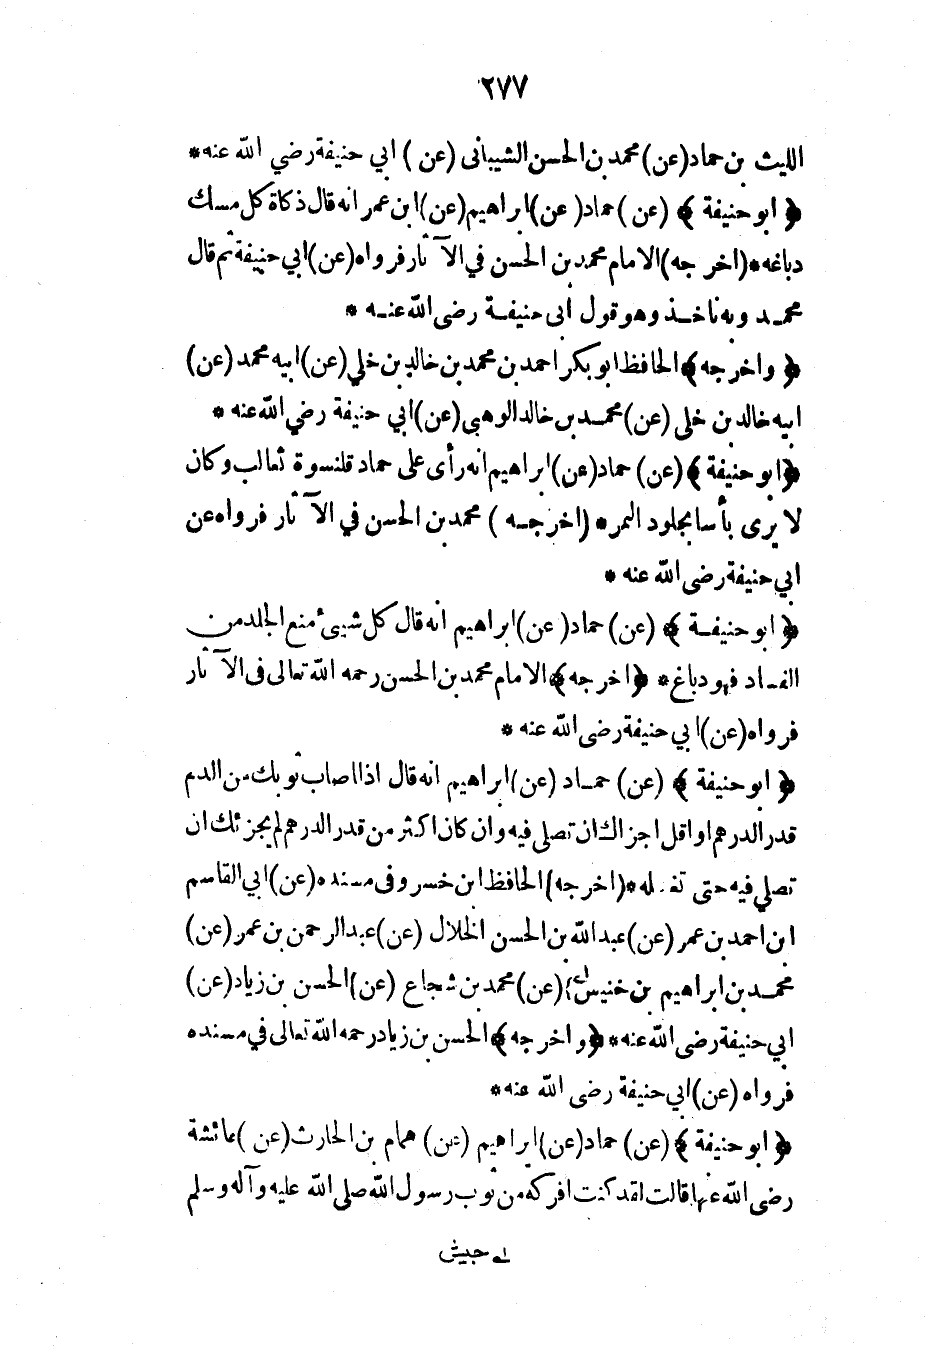 ٢٧٧
الليث بن حماد (عن) محمد بن الحسن الشيبانى (عن) ابي حنيفة رضي الله عنه *
﴿ ابو حنيفة ﴾ (عن) حماد (عن) ابراهيم (عن) ابن عمر انه قال ذكاة كل مسك
دباغه * (اخرجه) الامام محمد بن الحسن في الآثار فرواه (عن) ابي حنيفة ثم قال
محمد وبه ناخذ وهو قول ابى حنيفة رضى الله عنه *
﴿ واخرجه ﴾ الحافظ ابو بكر احمد بن محمد بن خالد بن خلي (عن) ابيه محمد (عن)
ابيه خالد بن خلى (عن) محمد بن خالد الوهبى (عن) ابي حنيفة رضي الله عنه *
﴿ ابو حنيفة ﴾ (عن) حماد (عن) ابراهيم انه رأى على حماد قلنسوة ثعالب وكان
لا يرى بأسا بجلود النمر * (اخرجه) محمد بن الحسن في الآثار فرواه عن
ابي حنيفة رضى الله عنه *
﴿ ابو حنيفة ﴾ (عن) حماد (عن) ابراهيم انه قال كل شيئ منع الجلد من
الفساد فهو دباغ * ﴿ اخرجه ﴾ الامام محمد بن الحسن رحمه الله تعالى فى الآثار
فرواه (عن) ابي حنيفة رضى الله عنه *
﴿ ابو حنيفة ﴾ (عن) حماد (عن) ابراهيم انه قال اذا اصاب ثوبك من الدم
قدر الدرهم او اقل اجزاك ان تصلى فيه وان كان اكثر من قدر الدرهم لم يجزئك ان
تصلي فيه حتى تغسله * (اخرجه) الحافظ ابن خسرو فى مسنده (عن) ابي القاسم
ابن احمد بن عمر (عن) عبد الله بن الحسن الخلال (عن) عبد الرحمن بن عمر (عن)
محمد بن ابراهيم بن خنيس (عن) محمد بن شجاع (عن) الحسن بن زياد (عن)
ابي حنيفة رضى الله عنه * ﴿ واخرجه ﴾ الحسن بن زياد رحمه الله تعالى في مسنده
فرواه (عن) ابي حنيفة رضى الله عنه *
﴿ ابو حنيفة ﴾ (عن) حماد (عن) ابراهيم (عن) همام بن الحارث (عن) عائشة
رضى الله عنها قالت لقد كنت افركه من ثوب رسول الله صلى الله عليه وآله وسلم
حبيش